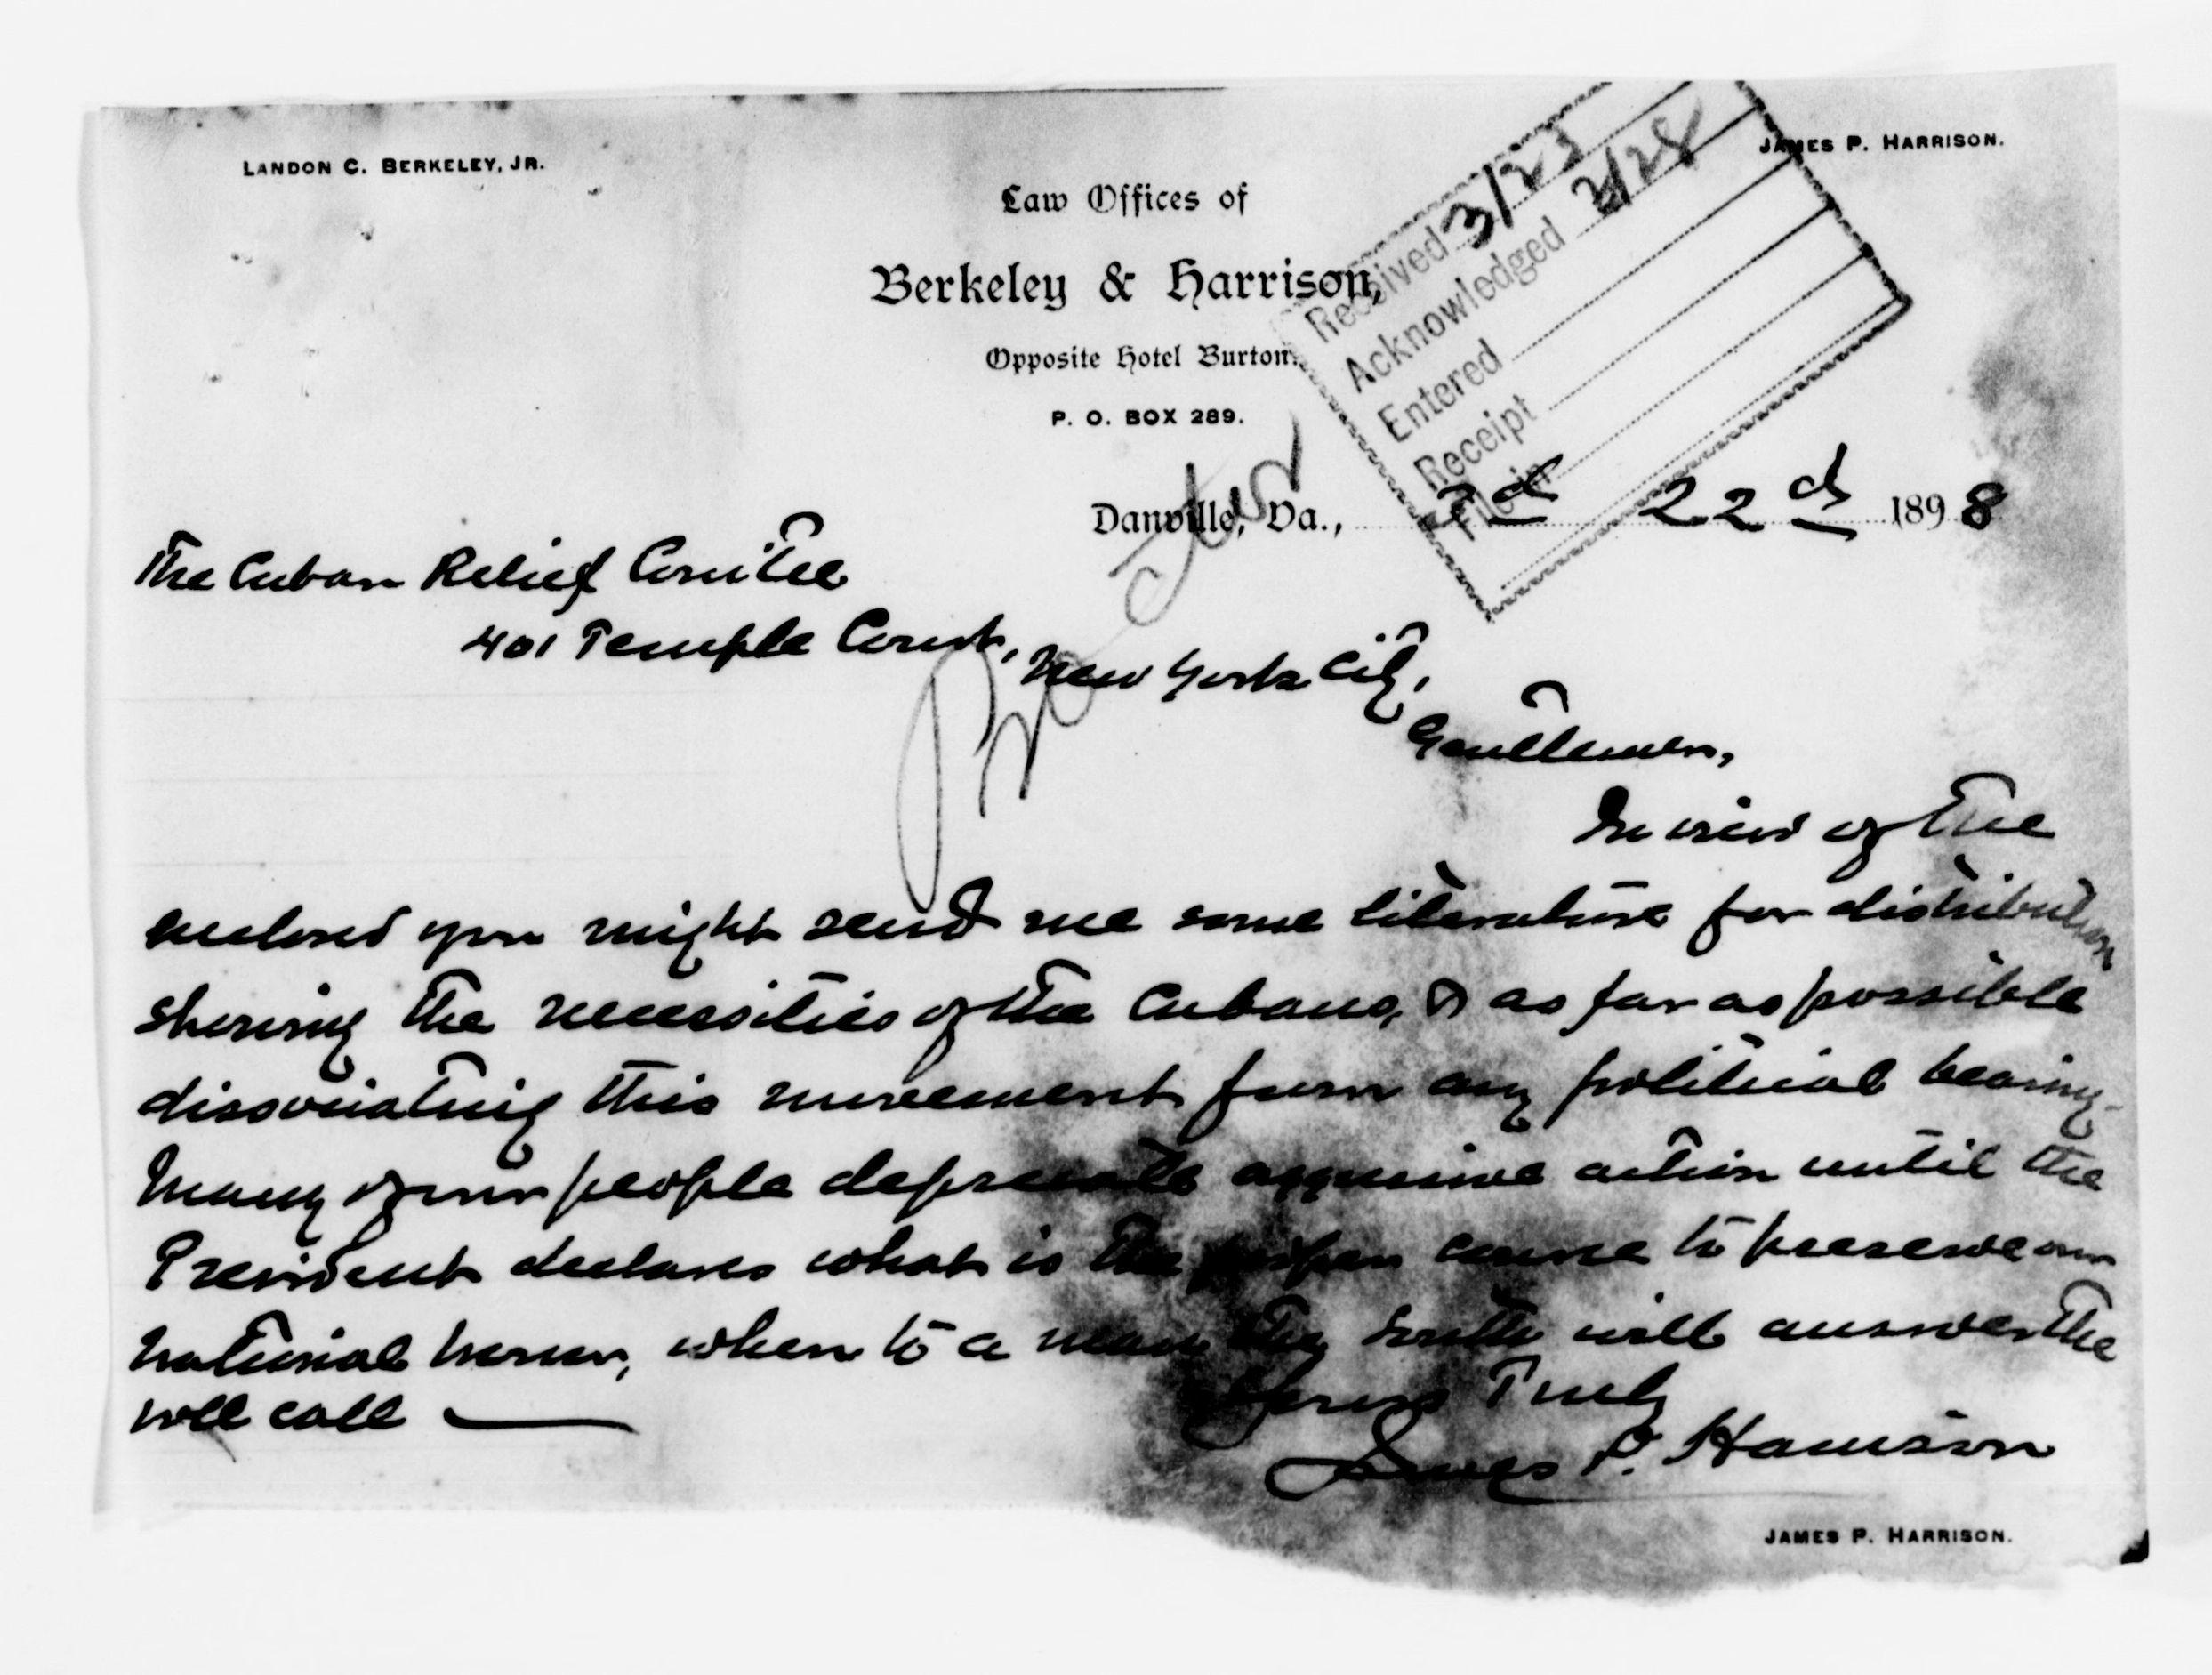 LANDON C. BERKELEY, JR.
JAMES P. HARRISON.
Law Offices of
Berkeley & Harrison,
Opposite Hotel Burton.
P. O. BOX 289.
Received 3/23
Acknowledged 3/28
Entered
Receipt
File in
Danville, Va., 3d 22d 1898
The Cuban Relief Comitee
401 Temple Court,
New York City,
Gentlemen,
In view of the
enclosed you might send me some literature for distribution
showing the necessities of the Cubans, & as far as possible
dissociating this movement from any political bearing.
Many of our people deprecate aggressive action until the
President declares what is the proper course to preserve our
national honor, when to a man the South will answer the
roll call —
Yours Truly
James P. Harrison
JAMES P. HARRISON.